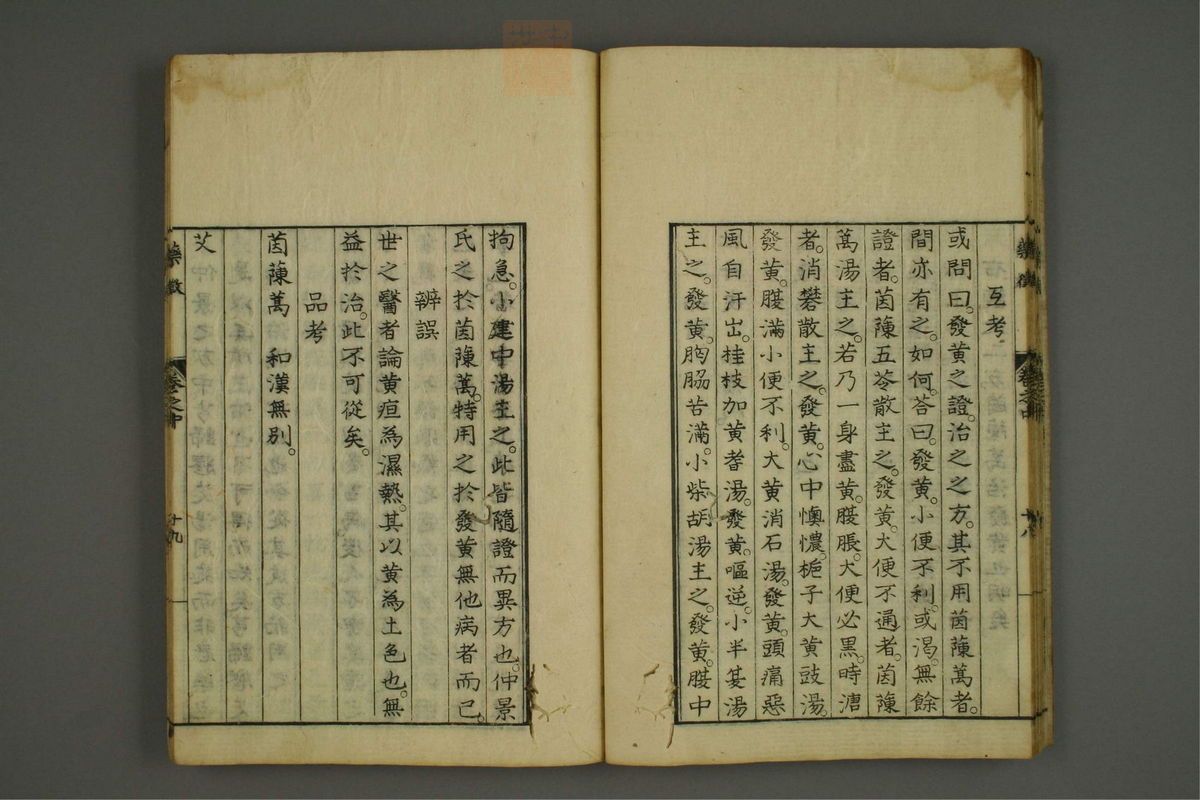 互考
或問曰。發黄之證。治之之方。其不用茵蔯蒿者。
間亦有之。如何。荅曰。發黄。小便不利。或渴。無餘
證者。茵蔯五苓散主之。發黄。大便不通者。茵蔯
蒿湯主之。若乃一身盡黄。腹脹。大便必黒。時溏
者。消礬散主之。發黄。心中懊憹。梔子大黄豉湯。
發黄。腹滿小便不利。大黄消石湯。發黄。頭痛惡
風自汗出。桂枝加黄耆湯。發黄。嘔逆。小半夏湯
主之。發黄。胸脇苦滿。小柴胡湯主之。發黄。腹中
藥徴
卷之中
十八
拘急。小建中湯主之。此皆隨證而異方也。仲景
氏之於茵蔯蒿。特用之於發黄無他病者而已。
辨誤
世之醫者論黄疸為濕熱。其以黄為土色也。無
益於治。此不可從矣。
品考
茵蔯蒿 和漢無別。
艾
藥徴
卷之中
十九